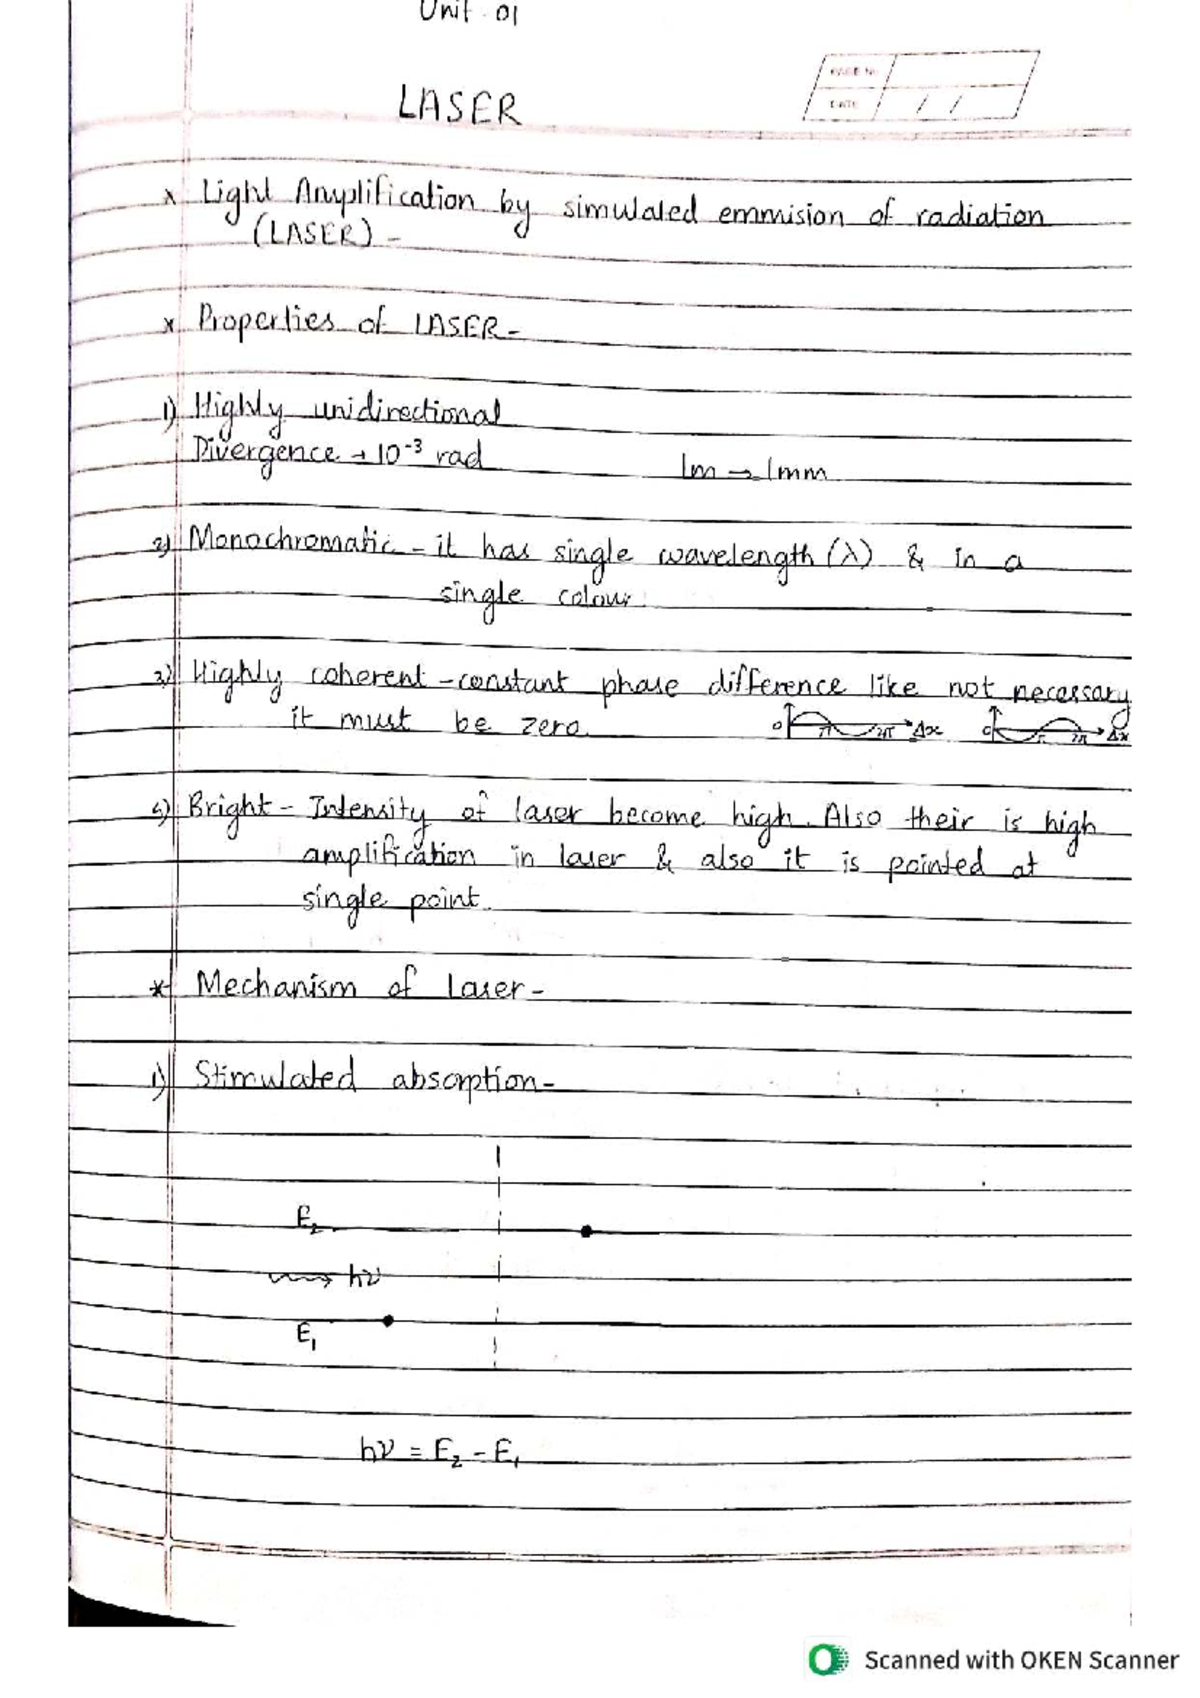 Unit 01
PAGE No.
DATE / /
LASER
* Light Amplification by simulated emmision of radiation
(LASER) -
* Properties of LASER -
1) Highly unidirectional
Divergence → 10⁻³ rad 1m → 1mm
2) Monochromatic - it has single wavelength (λ) & in a
single colour.
3) Highly coherent - constant phase difference like not necessary
it must be zero.
0 π 2π Δx 0 π 2π Δx
4) Bright - Intensity of laser become high. Also their is high
amplification in laser & also it is pointed at
single point.
* Mechanism of Laser -
1) Stimulated absorption -
E₂
hν
E₁
hν = E₂ - E₁
Scanned with OKEN Scanner